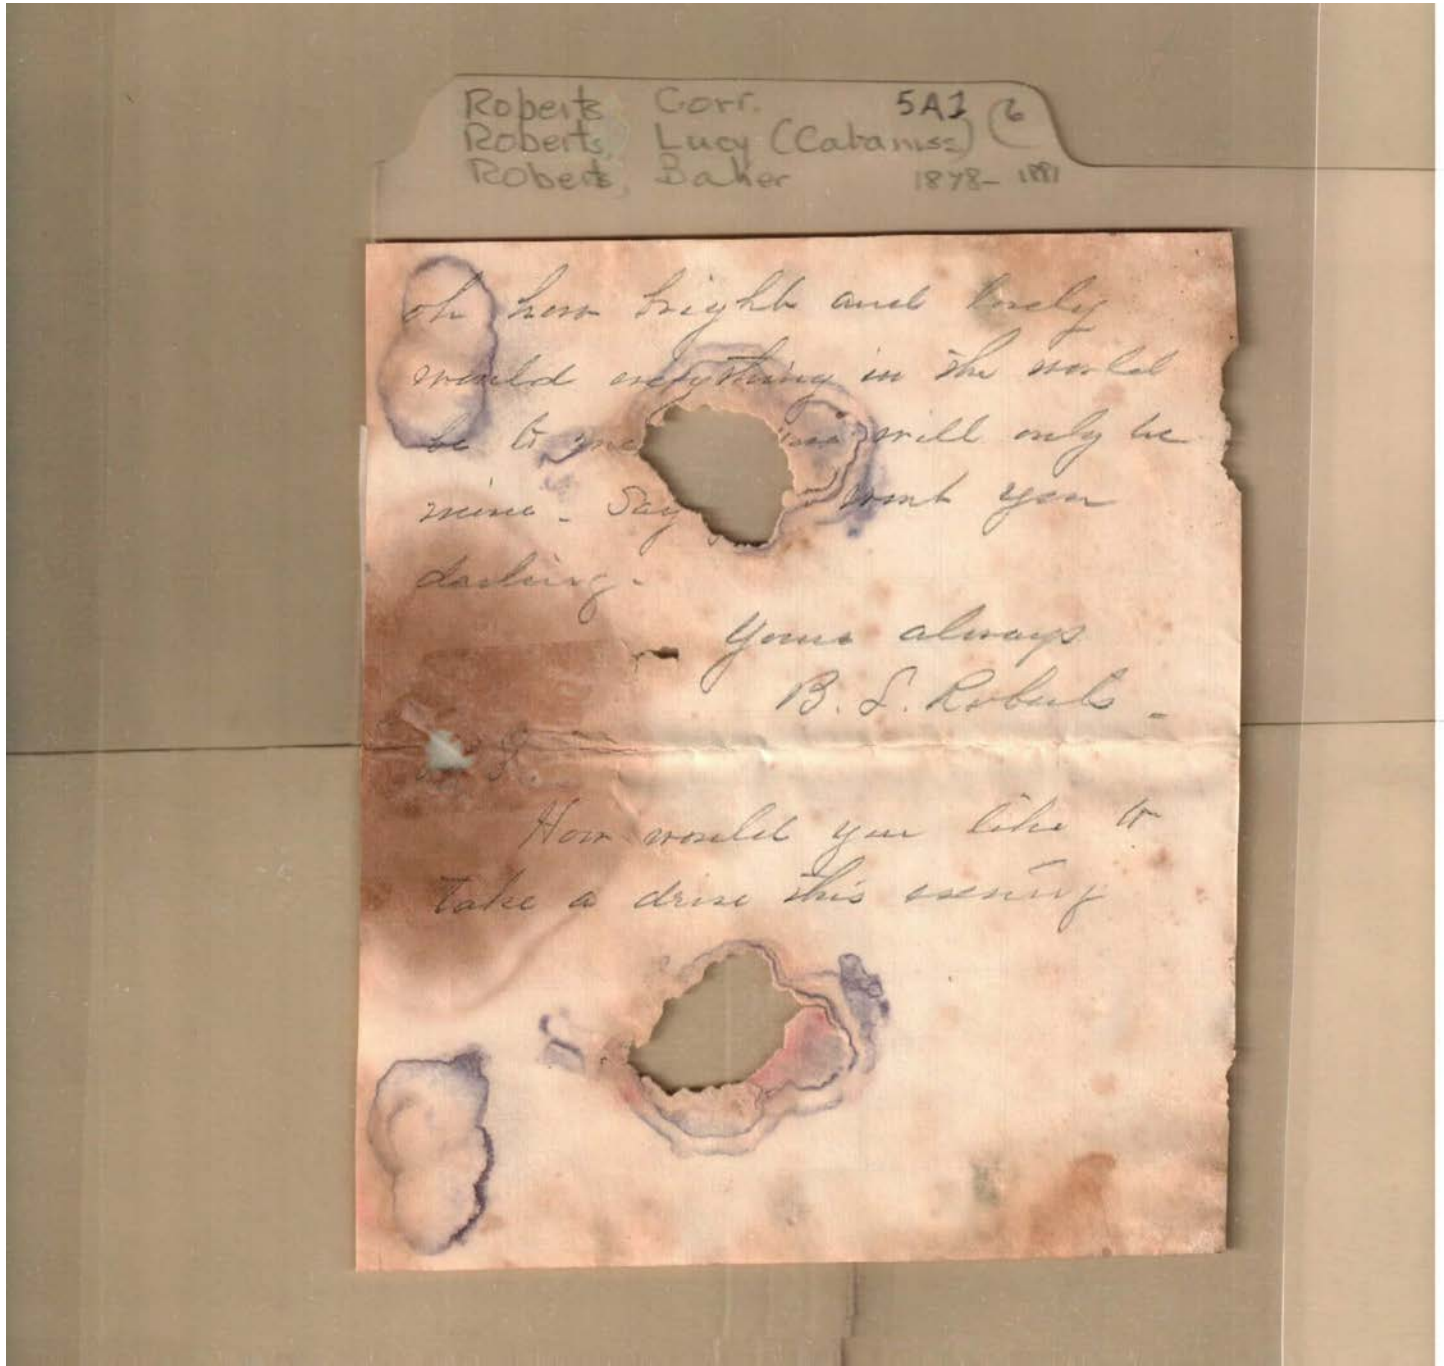 Roberts Corr. 5A1 6
Roberts, Lucy (Cabaniss)
Roberts, Baker 1878- 1881
oh how bright and lovely
would everything in the world
be to me will only be
mine. Say wont you
darling.
Yours always
B. L. Roberts.
S.
How would you like to
take a drive this evening